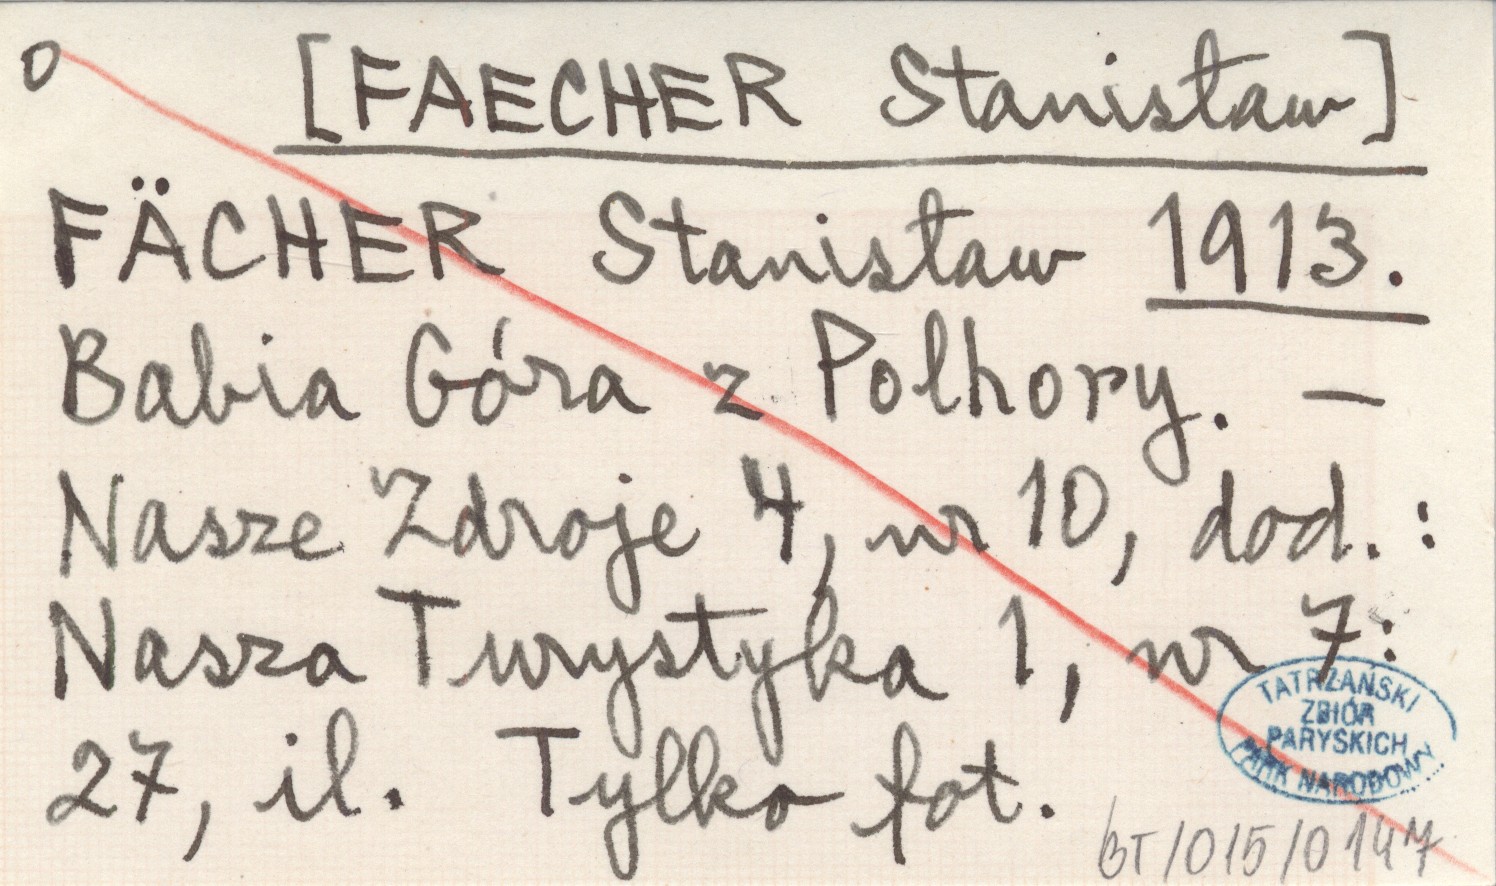 O [FAECHER Stanisław]
FÄCHER Stanisław 1913.
Babia Góra z Polhory. —
Nasze Zdroje 4, nr 10, dod.:
Nasza Turystyka 1, nr 7:
27, il. Tylko fot.
TATRZAŃSKI
ZBIÓR
PARYSKICH
PARK NARODOWY
BT/015/0147